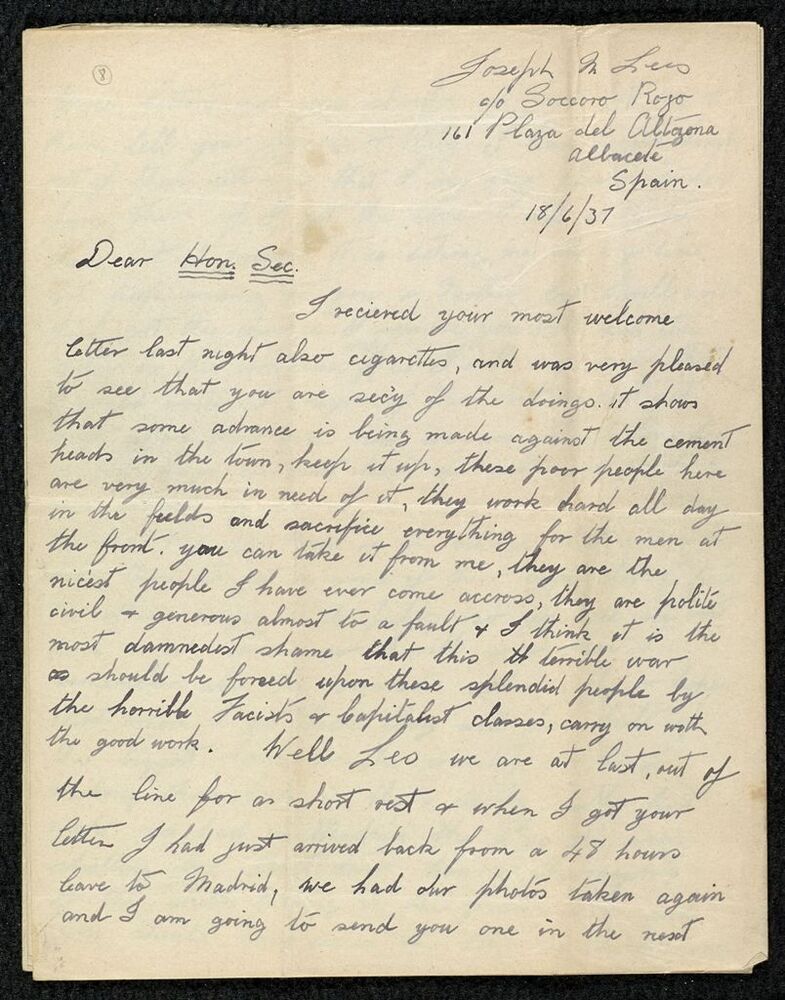 8
Joseph M Lees
c/o Soccoro Rojo
161 Plaza del Altozona
Albacete
Spain.
18/6/37
Dear Hon. Sec.
I recieved your most welcome
letter last night also cigarettes, and was very pleased
to see that you are sec'y of the doings. it shows
that some advance is being made against the cement
heads in the town, keep it up, these poor people here
are very much in need of it, they work hard all day
in the fields and sacrifice everything for the men at
the front. you can take it from me, they are the
nicest people I have ever come accross, they are polite
civil & generous almost to a fault & I think it is the
most damnedest shame that this th terrible war
as should be forced upon these splendid people by
the horrible Facists & Capitalist classes, carry on with
the good work. Well Leo we are at last, out of
the line for a short rest & when I got your
letter I had just arrived back from a 48 hours
leave to Madrid, we had our photos taken again
and I am going to send you one in the next